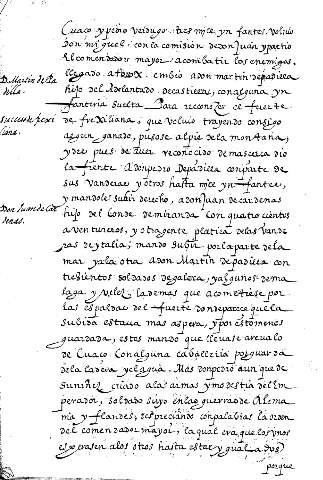 Cuaço y pedro verdugo: tres mil e ynfantes. Voluio
Don miguel: con la comision de don Juan y partio
el comendador mayor a combatir los enemigos,
llegado a embio a don martin de padilla
D. Martin de Pa
dilla.
hijo del Adelantado de castilla, con alguna yn
fanteria suelta Para reconoçer el fuerte
de frexiliana, que voluio trayendo consigo
algun ganado, puso se al pie de la montaña,
y des pues de auer reconoçido de mas cerca dio
la frente. A don pedro De padilla con parte de
sus vanderas y otros hasta mil e ynfantes,
y mandole subir derecho, a don Juan de cardenas
Don Juan de Car
denas.
hijo del conde de miranda. Con quatro cientos
aventureros, y otra gente platica de las vande
ras de ytalia; mando subir por la parte de la
mar y a la otra a don Martin de padilla con
trezientos soldados de galera, y algunos de ma
laga y velez. la demas que acometiese por
las espaldas del fuerte donde pareçe que la
subida estaua mas aspera, y por esto menos
guardada, estos mando que lleuase areualo
de Cuaço. Con alguna caballeria por guarda
de la ladera y el agua. Mas don pedro aun que de
su niñez criado a las armas y modestia del Em
perador, soldado suyo en las guerras de Alema
nia y flandes; despreçiando con palabras la orden
del comendador mayor, la qual era que los unos
esperasen a los otros hasta estar ygual a dos
porque